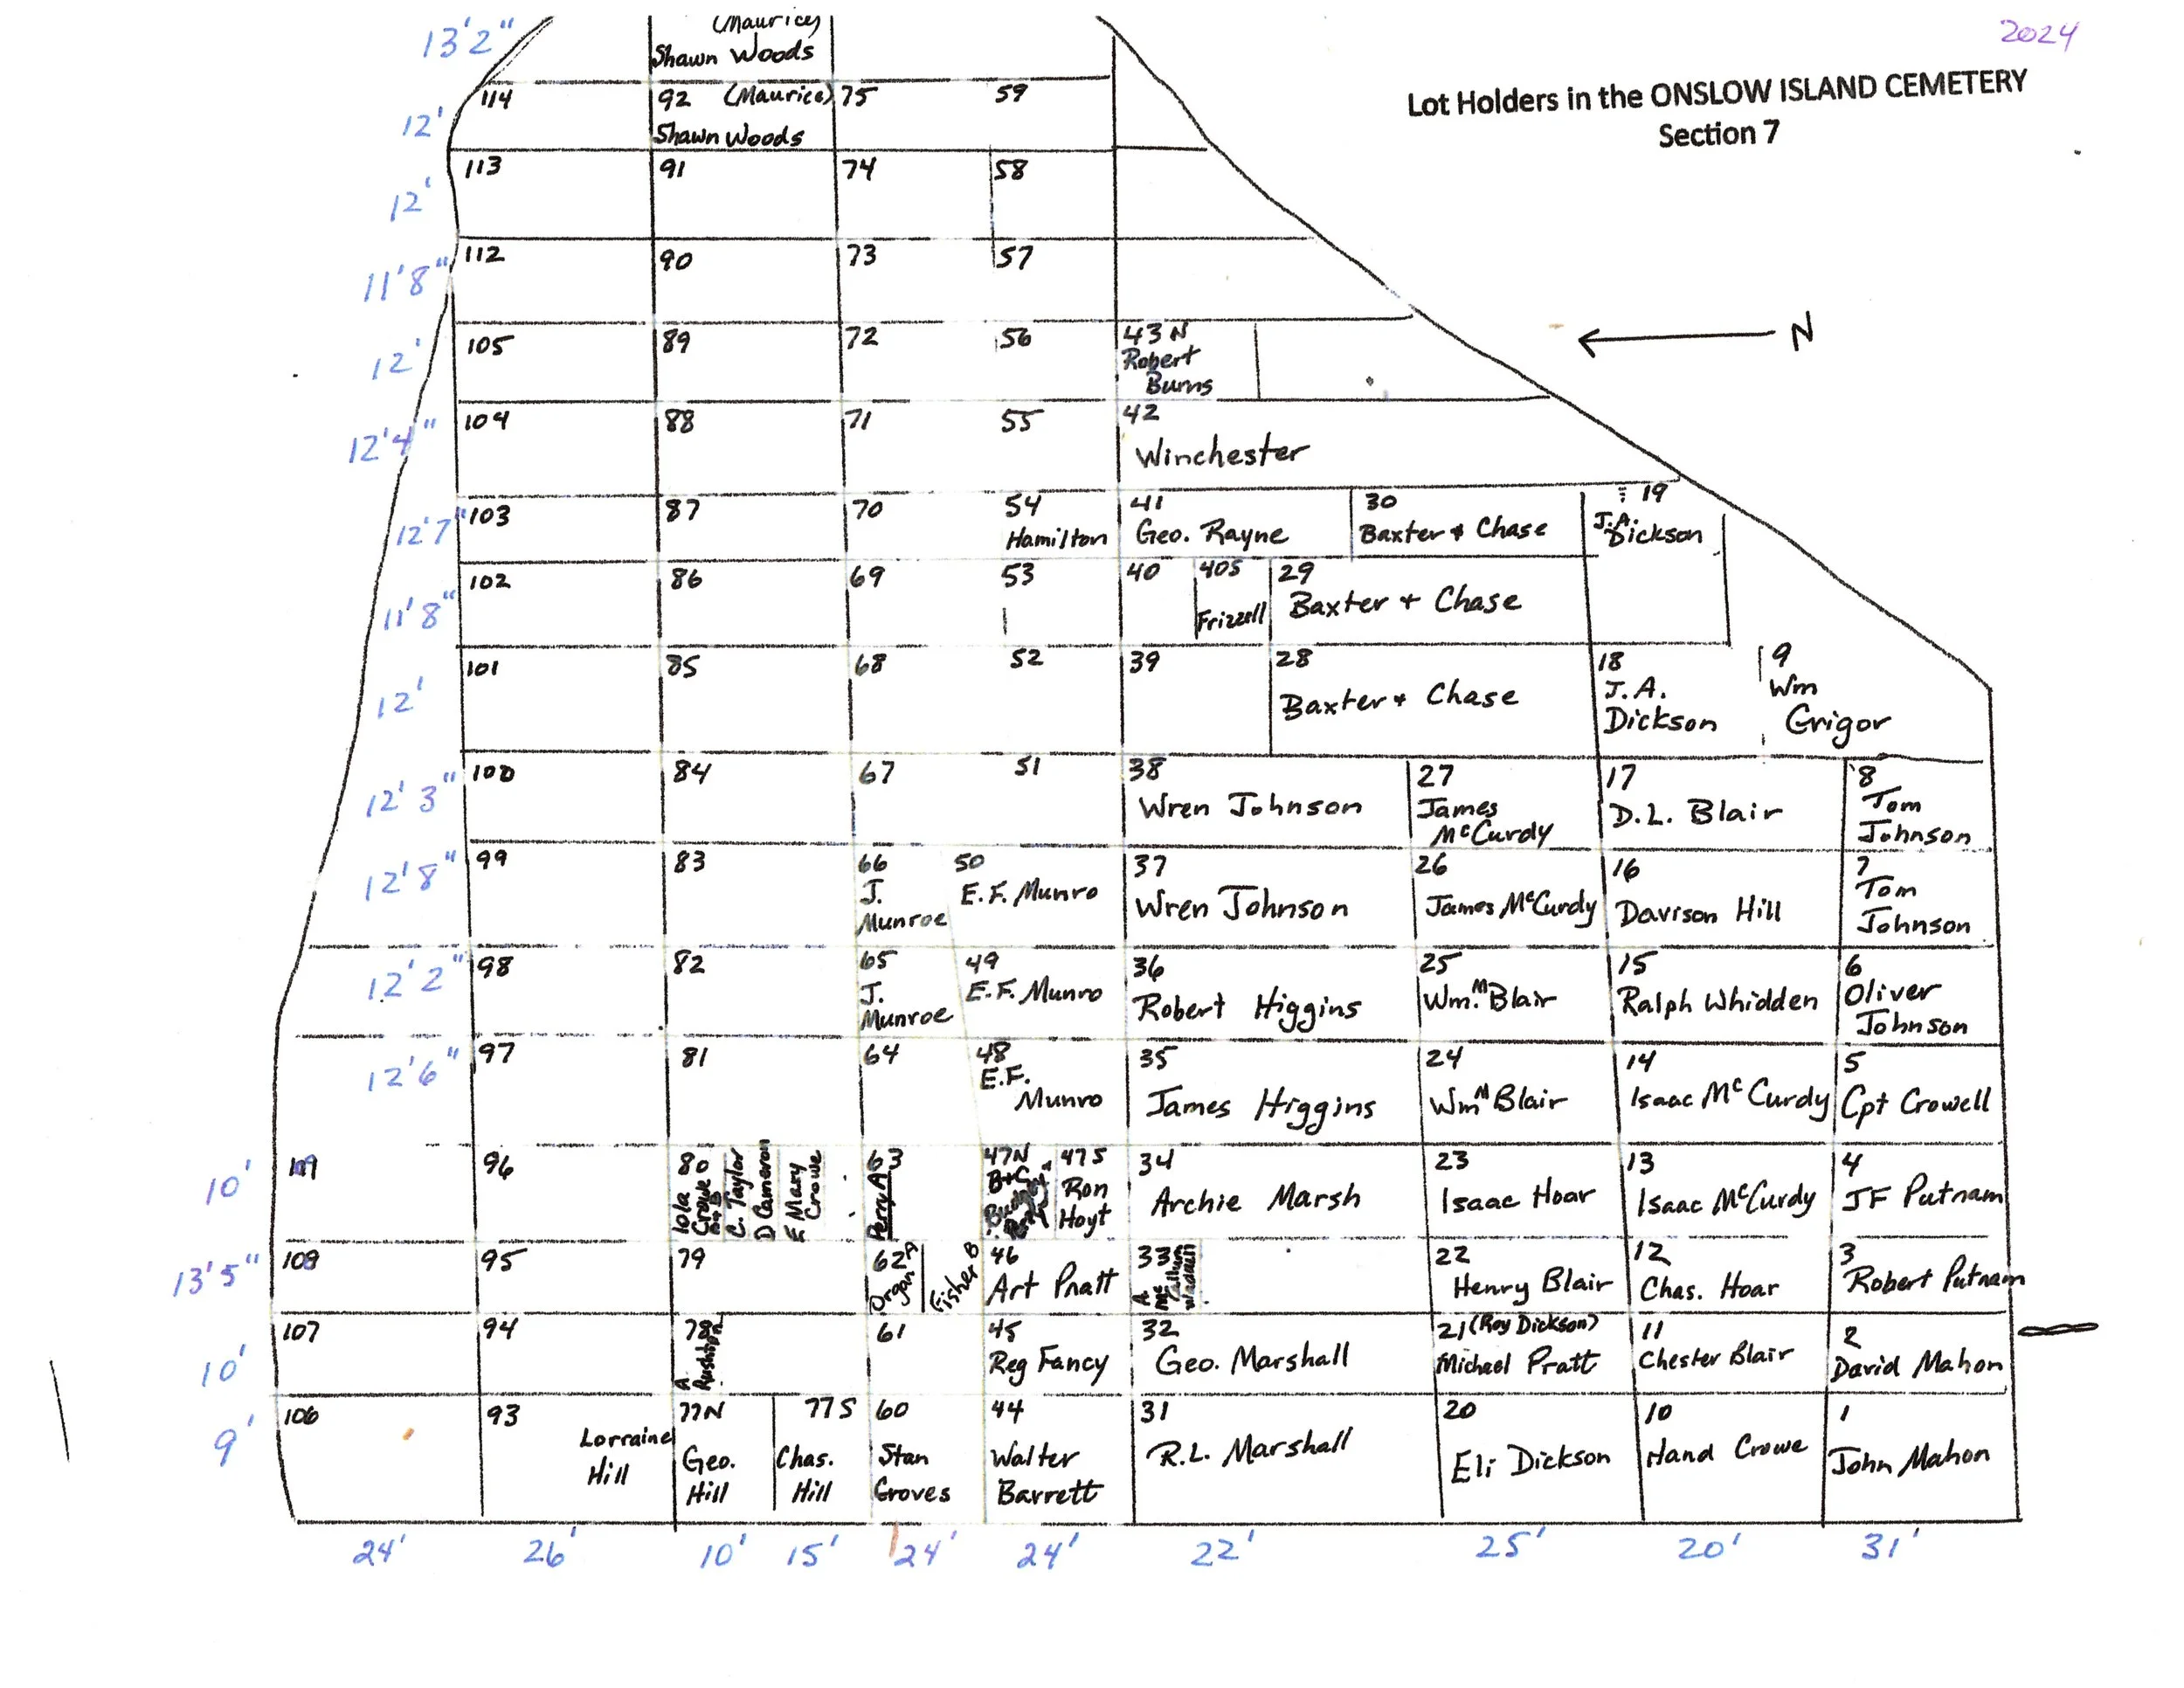 2024
Lot Holders in the ONSLOW ISLAND CEMETERY
Section 7
N
13'2"
(Maurice)
Shawn Woods
12'
114
92 (Maurice)
Shawn Woods
75
59
12'
113
91
74
58
11'8"
112
90
73
57
12'
105
89
72
56
43 N
Robert
Burns
12'4"
104
88
71
55
42
Winchester
12'7"
103
87
70
54
Hamilton
41
Geo. Rayne
30
Baxter + Chase
19
J.A.
Dickson
11'8"
102
86
69
53
40
40S
Frizzell
29
Baxter + Chase
12'
101
85
68
52
39
28
Baxter + Chase
18
J.A.
Dickson
9
Wm
Grigor
12'3"
100
84
67
51
38
Wren Johnson
27
James
McCurdy
17
D.L. Blair
8
Tom
Johnson
12'8"
99
83
66
J.
Munroe
50
E.F. Munro
37
Wren Johnson
26
James McCurdy
16
Davison Hill
7
Tom
Johnson
12'2"
98
82
65
J.
Munroe
49
E.F. Munro
36
Robert Higgins
25
Wm. M Blair
15
Ralph Whidden
6
Oliver
Johnson
12'6"
97
81
64
48
E.F.
Munro
35
James Higgins
24
Wm M Blair
14
Isaac McCurdy
5
Cpt Crowell
10'
96
80
Iola
Crowe
A+B
C. Taylor
D Cameron
E Mary
Crowe
63
Perry A
47N
B+C
47S
Ron
Hoyt
34
Archie Marsh
23
Isaac Hoar
13
Isaac McCurdy
4
JF Putnam
13'5"
108
95
79
62 A
Organ
Fisher B
46
Art Pratt
33
A
Mc
22
Henry Blair
12
Chas. Hoar
3
Robert Putnam
10'
107
94
78
A
Rushton
61
45
Reg Fancy
32
Geo. Marshall
21 (Roy Dickson)
Michael Pratt
11
Chester Blair
2
David Mahon
9'
106
93
Lorraine
Hill
77N
Geo.
Hill
77S
Chas.
Hill
60
Stan
Groves
44
Walter
Barrett
31
R.L. Marshall
20
Eli Dickson
10
Hand Crowe
1
John Mahon
24' 26' 10' 15' 24' 24' 22' 25' 20' 31'